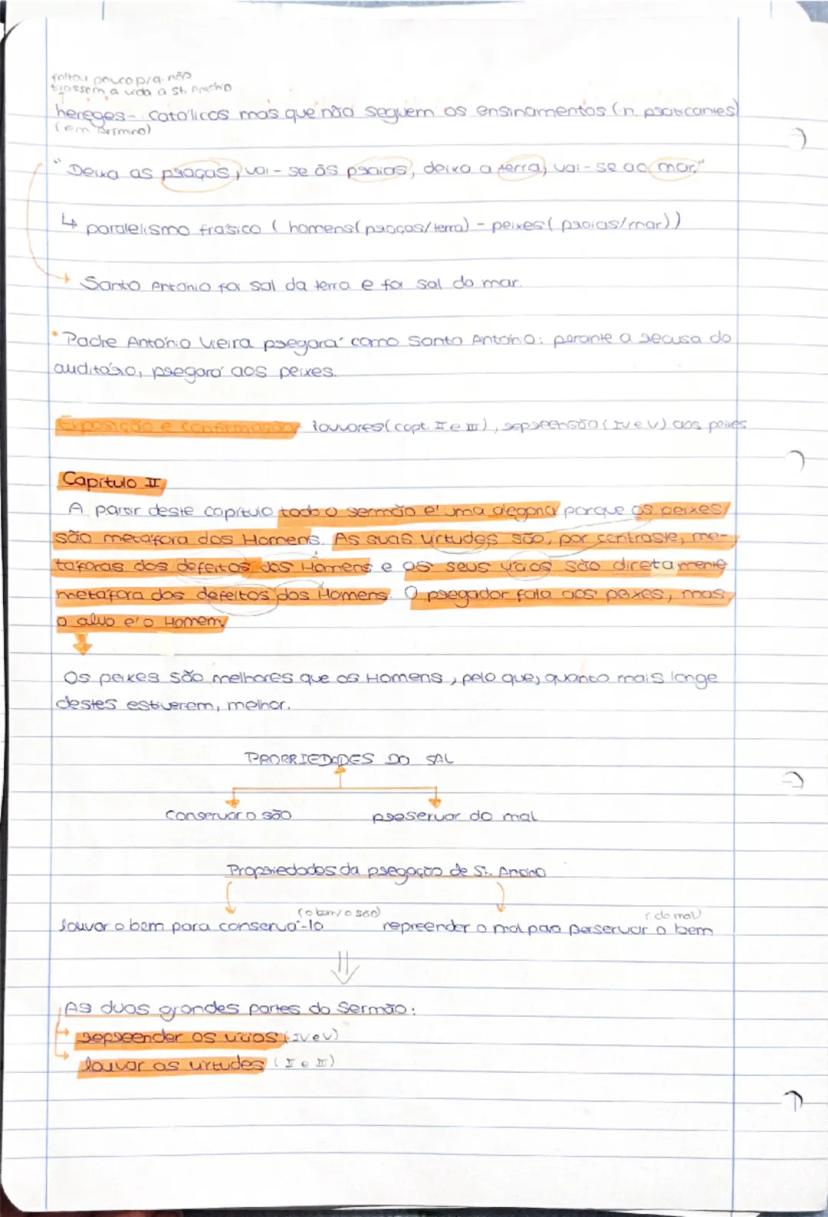 faltou pouco pra não
tirassem a vida a St. António
hereges - católicos mas que não seguem os ensinamentos (n. praticantes)
(em Arimino)
"Deixa as praças, vai-se às praias, deixa a terra, vai-se ao mar."
↳ paralelismo frásico (homens (praças/terra) - peixes (praias/mar))
→ Santo António foi sal da terra e foi sal do mar.
• Padre António Vieira pregará como Santo António: perante a recusa do
auditório, pregará aos peixes.
Exposição e confirmação louvores (capt. II e III), repreensão (IV e V) aos peixes
Capítulo II
A partir deste capítulo todo o sermão é uma alegoria porque os peixes
são metáfora dos Homens. As suas virtudes são, por contraste, me-
táforas dos defeitos dos Homens e os seus vícios são diretamente
metáfora dos defeitos dos Homens. O pregador fala aos peixes, mas
o alvo é o Homem
Os peixes são melhores que os Homens, pelo que, quanto mais longe
destes estiverem, melhor.
PROPRIEDADES DO SAL
conservar o são preservar do mal
Propriedades da pregação de St. António
(o bem/o são) (do mal)
louvar o bem para conservá-lo repreender o mal para perservar o bem
As duas grandes partes do Sermão:
→ repreender os vícios (IV e V)
→ louvar as virtudes (II e III)